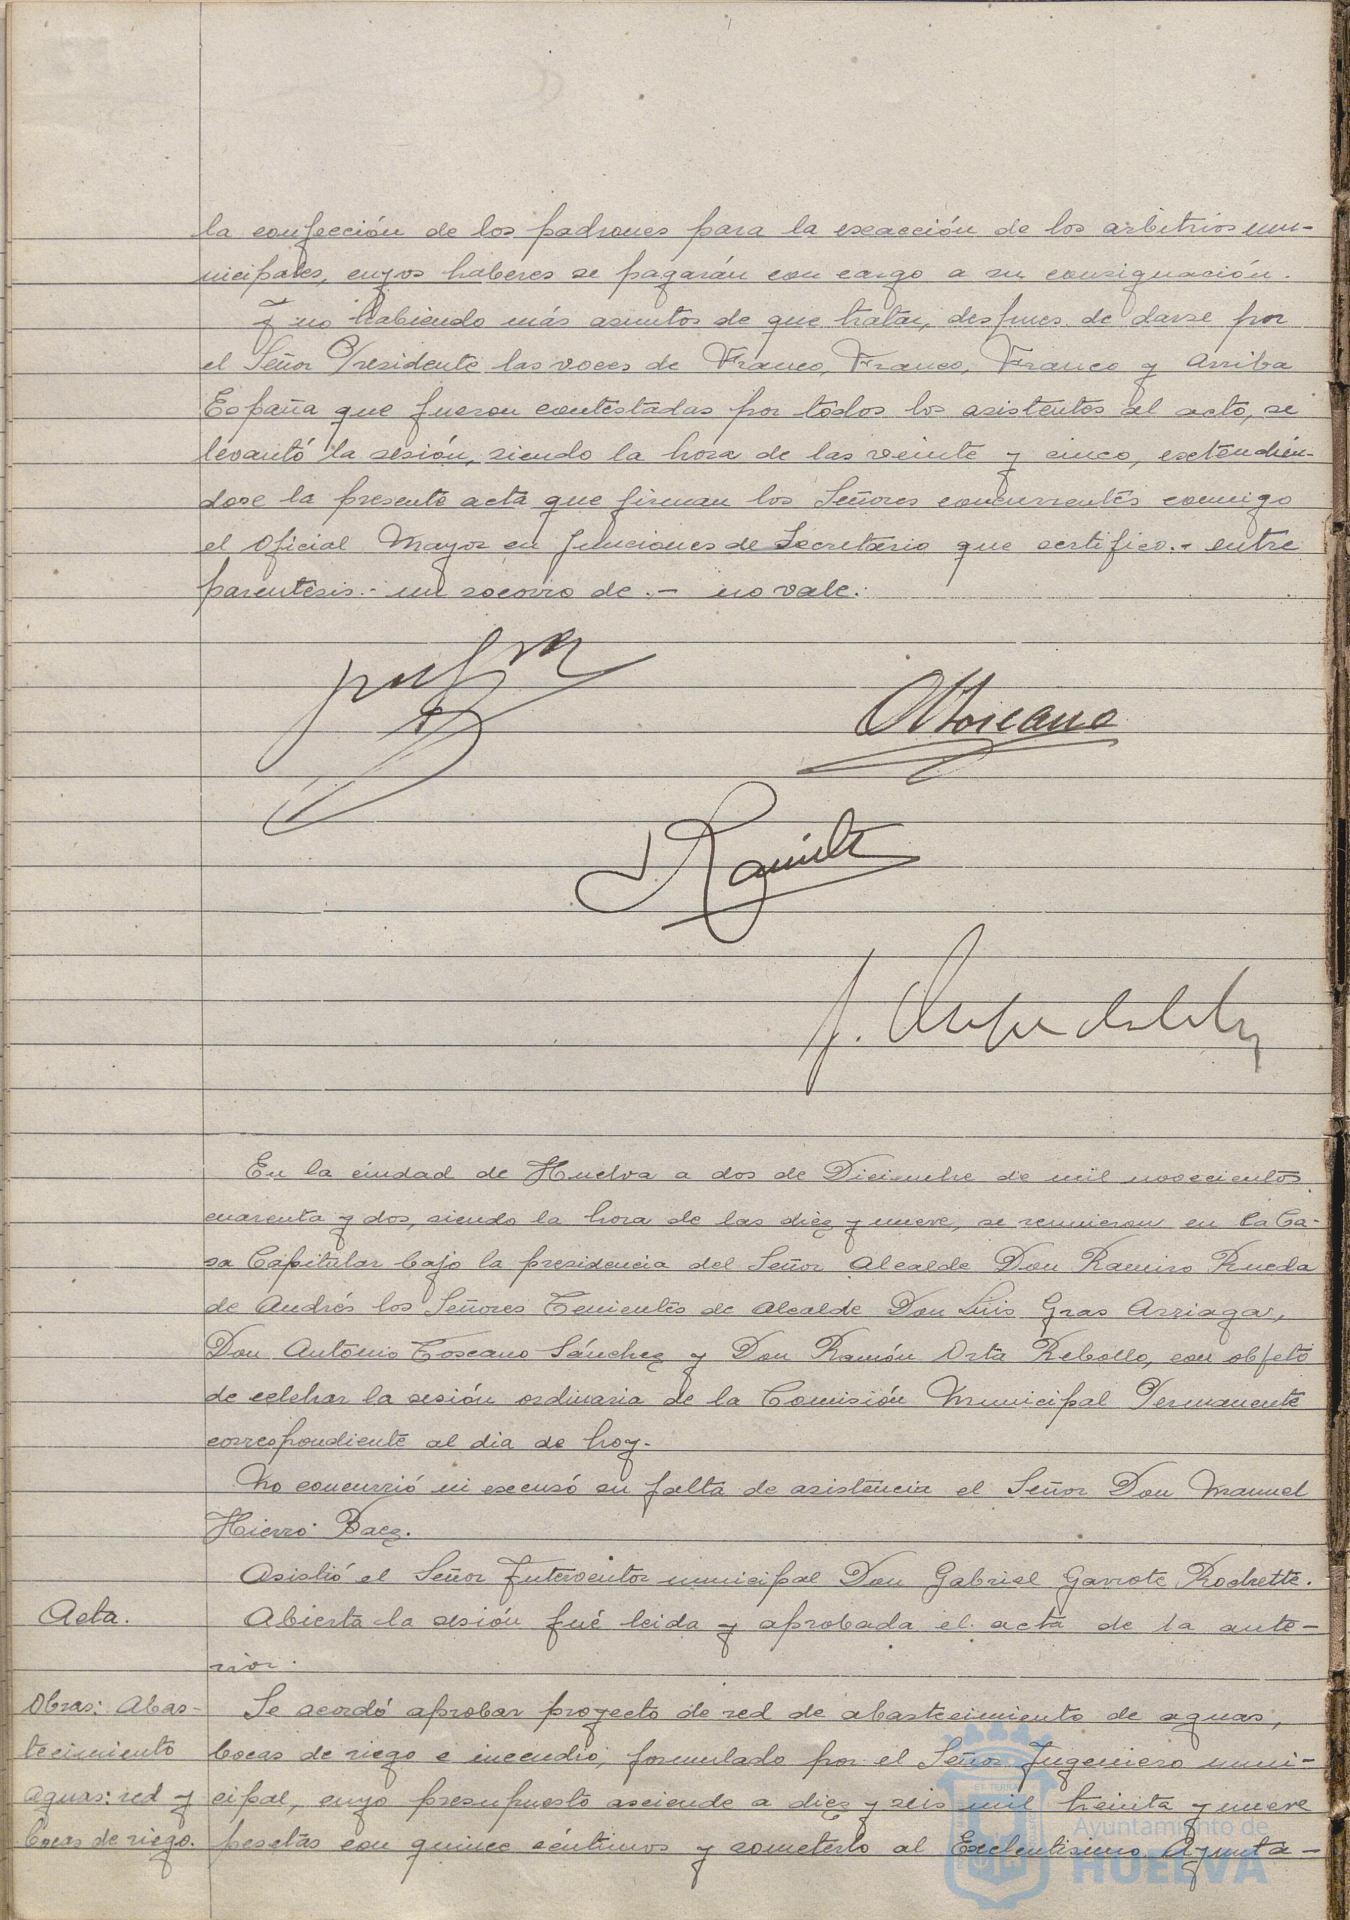 la confección de los padrones para la exacción de los arbitrios mu-
nicipales, cuyos haberes se pagarán con cargo a su consignación.
Y no habiendo más asuntos de que tratar, despues de darse por
el Señor Presidente las voces de Franco, Franco, Franco y Arriba
España que fueron contestadas por todos los asistentes al acto, se
levantó la sesión, siendo la hora de las veinte y cinco, extendién-
dose la presente acta que firman los Señores concurrentes conmigo
el Oficial Mayor en funciones de Secretario que certifico.- entre
parentesis.- un socorro de.- no vale.
A Toscano
Ramírez
En la ciudad de Huelva a dos de Diciembre de mil novecientos
cuarenta y dos, siendo la hora de las diez y nueve, se reunieron en la Ca-
sa Capitular bajo la presidencia del Señor Alcalde Don Ramiro Rueda
de Andrés los Señores Tenientes de Alcalde Don Luis Gras Arriaga,
Don Antonio Toscano Sánchez y Don Ramón Orta Rebollo, con objeto
de celebrar la sesión ordinaria de la Comisión Municipal Permanente
correspondiente al dia de hoy.
No concurrió ni excusó su falta de asistencia el Señor Don Manuel
Hierro Baez.
Asistió el Señor Interventor municipal Don Gabriel Garrote Rochette.
Acta. Abierta la sesión fué leida y aprobada el acta de la ante-
rior.
Obras: Abas- Se acordó aprobar proyecto de red de abastecimiento de aguas,
tecimiento bocas de riego e incendio, formulado por el Señor Ingeniero muni-
aguas: red y cipal, cuyo presupuesto asciende a diez y seis mil treinta y nueve
bocas de riego. pesetas con quince céntimos y someterlo al Exclentisimo Ayunta-
Ayuntamiento de
HUELVA